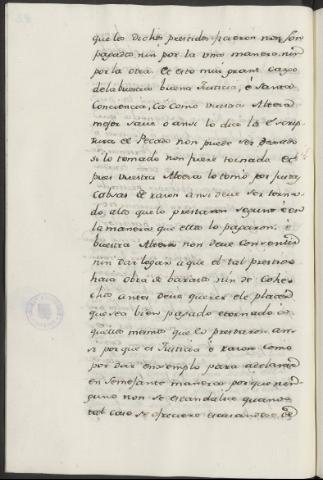 que los dichos prestidos fueron non son
pagados nin por la una manera nin
por la otra. Et esto muy grant cargo
de la buestra buena Justicia, e Santa
Conciencia, ca como vuestra Alteza
mejor save o ansi lo dice la escrip-
tura el Pecado non puede ser
si lo tomado non fuere tornado. Et
pues vuestra Alteza lo tomó por justas
cabsas et razon ansi deve ser torna-
do, a los que lo prestaron segund e en
la manera que ellos lo pagaron. e
buestra Alteza non deve consentir
nin dar logar a que el tal prestido
haia obra de barato nin de cohe-
cho antes deve querer e le placer
que sea bien pagado e tornado a
aquellos mesmos que lo prestaron an-
si porque es Justicia e razon como
por dar enxemplo para adelante
en semejante manera porque nin-
guno non se escandalice quando
tal caso se ofreciere